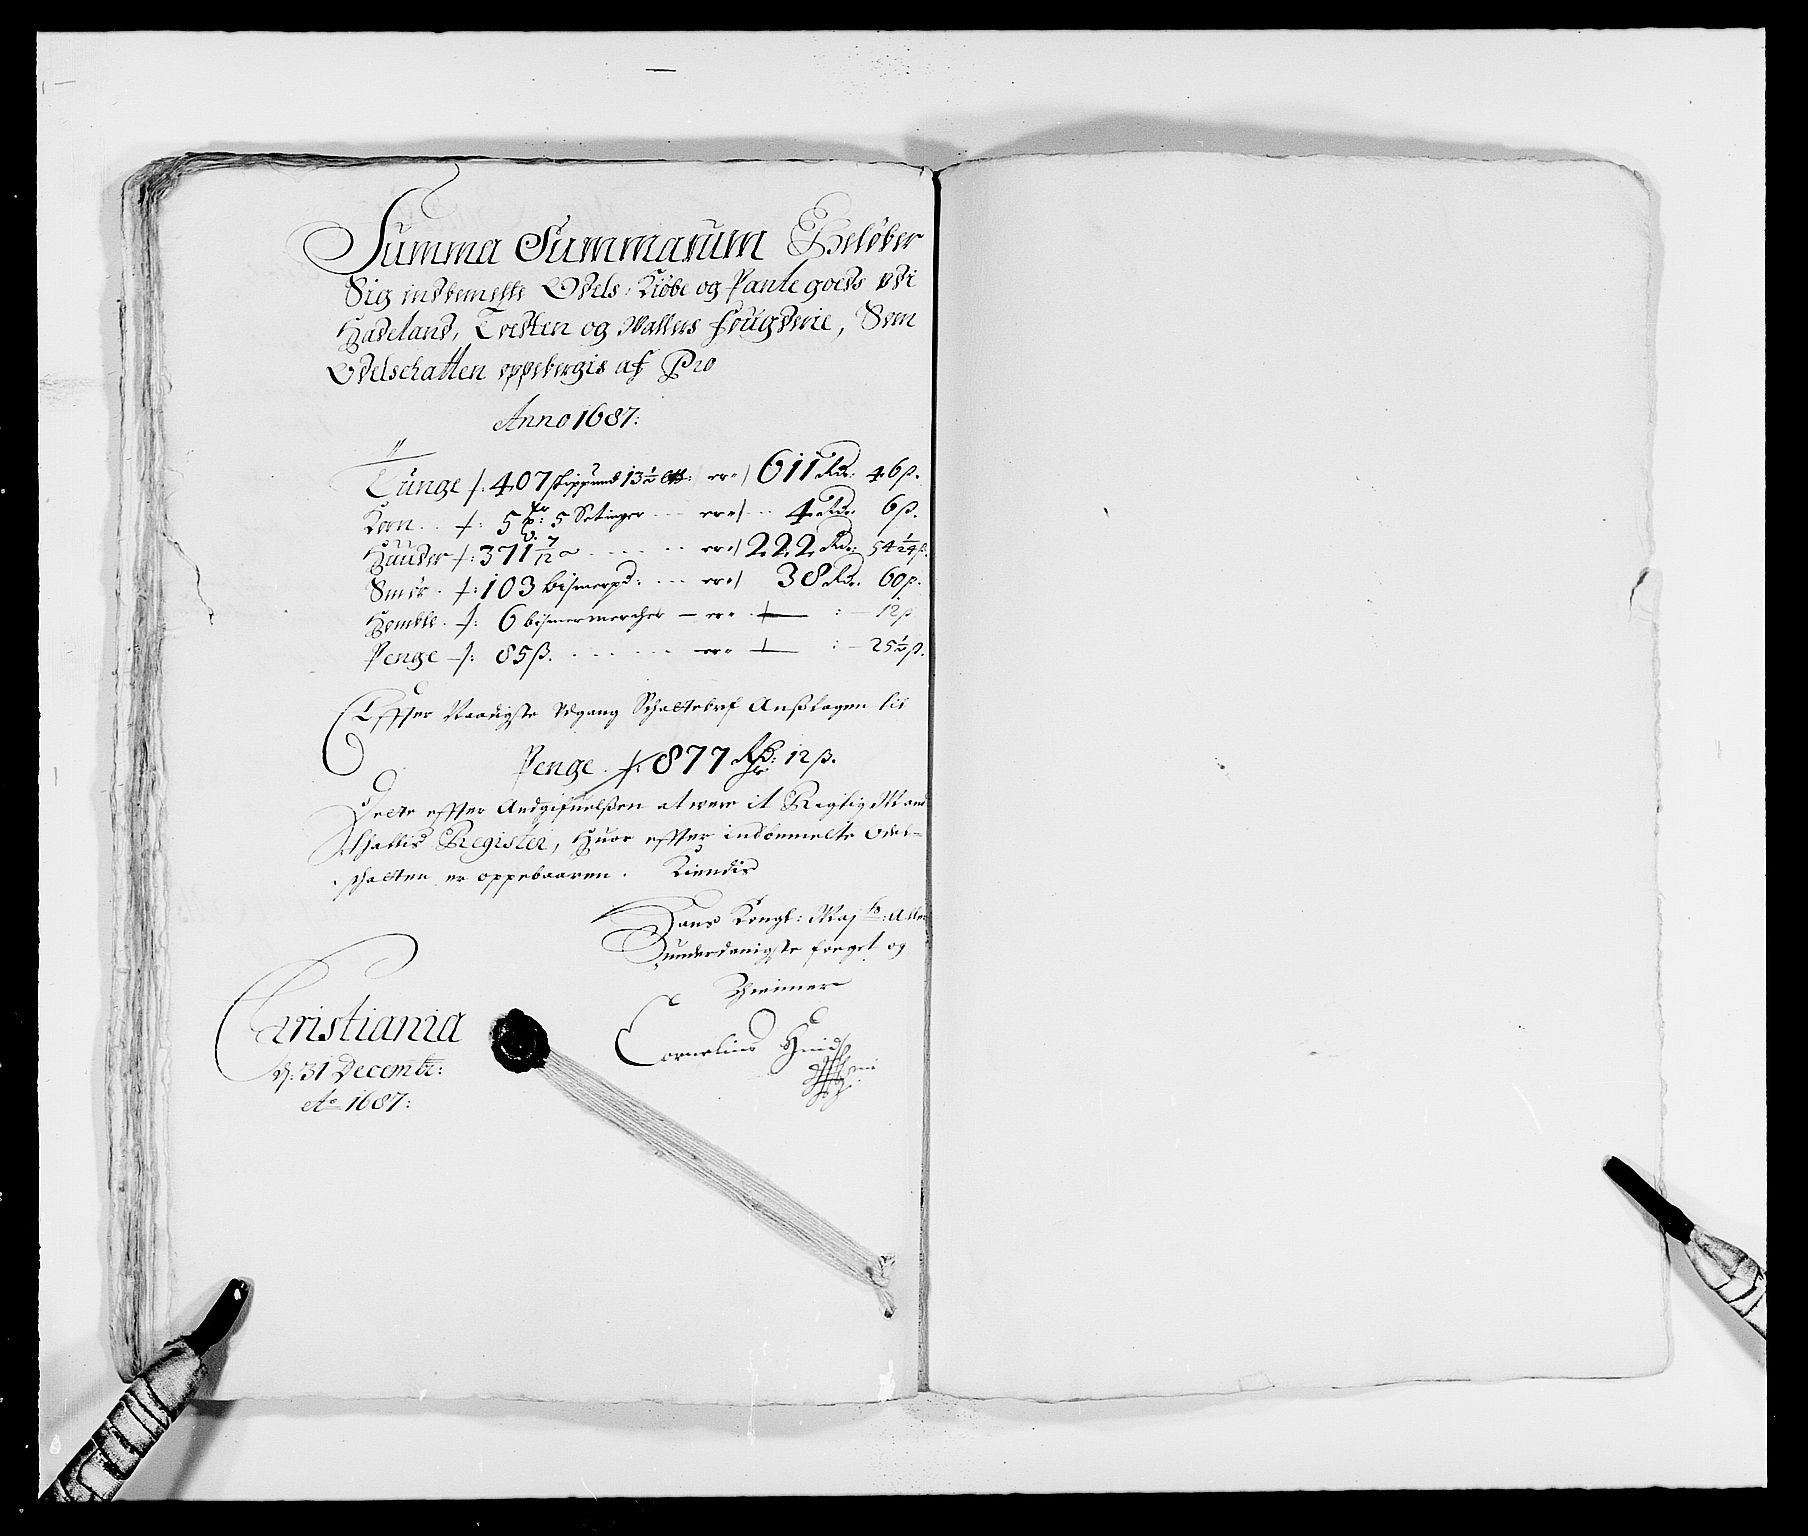 Summa Summarum Beløber
Sig indbemelte Odels: Kiøbe og Pante goeds udi
Hadeland, Tredten og Walders fougderie, Som
Odelschatten oppebergis af Pro
Anno 1687:
Tunge /: 407 skippund 13½ er 611 Rd: 46 ß.
Korn /: 5 5 Setinger er 4 Rd: 6 ß.
Huuder /: 371 7/12 er 222 Rd: 54 1/24 ß.
Smør /: 103 bismerpd: er 38 Rd: 60 ß.
Homble /: 6 bismermercher er 12 ß
Penge /: 85 ß. er 25½ ß.
Effter Naadigste Udgang Schattebref Anslagen til
Penge /: 877 Rd: 12 ß.
Dette effter Andgifuelsen at were it Rigtig Mand
Register, Huor effter indbemelte Odel-
schatten er oppebaaren. Kiendis
Hans Kongl: Maj: Aller
underdanigste foeget og
Thienner
Cornelius
Christiania
d: 31 Decembr:
Ao 1687: